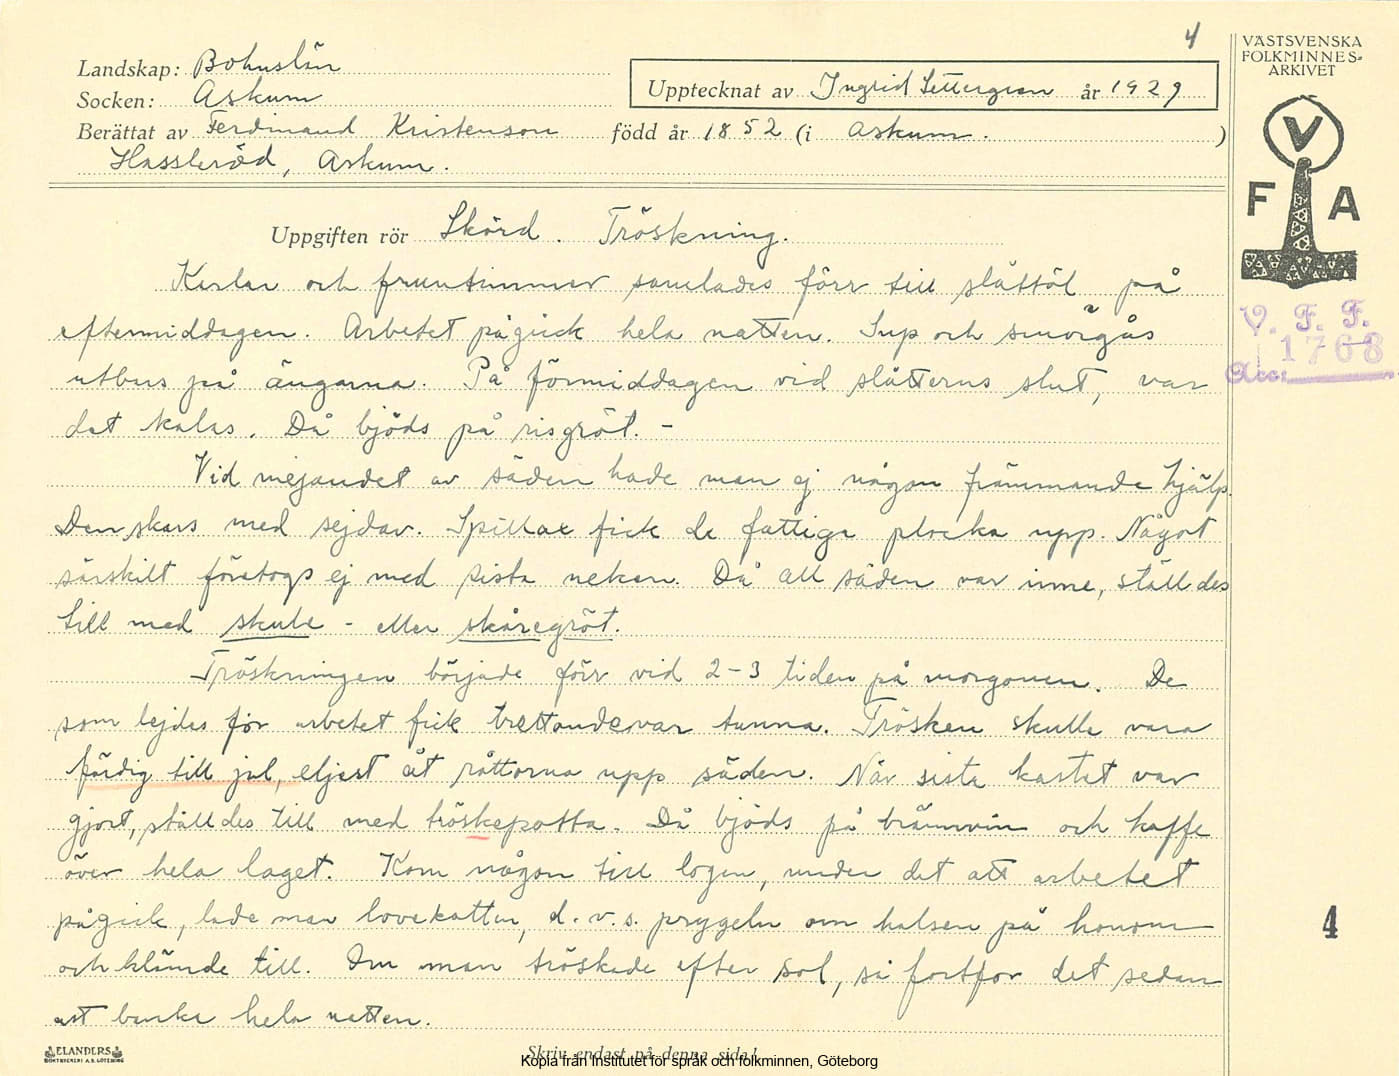 4
VÄSTSVENSKA
FOLKMINNES-
ARKIVET
Landskap: Bohuslän
Socken: Askum
Upptecknat av Ingrid Settergren år 1929
Berättat av Ferdinand Kristenson född år 1852 (i Askum. )
Hassleröd, Askum.
V
F A
Uppgiften rör Skörd. Tröskning.
Karlar och fruntimmer samlades förr till slåttöl på
eftermiddagen. Arbetet pågick hela natten. Sup och smörgås
utbars på ängarna. På förmiddagen vid slåtterns slut, var
det kalas. Då bjöds på risgröt. -
V. F. F.
Acc: 1768
Vid mejandet av säden hade man ej någon främmande hjälp.
Den skars med sejdar. Spillax fick de fattiga plocka upp. Något
särskilt företogs ej med sista neken. Då all säden var inne, ställdes
till med skule - eller skåregröt.
Tröskningen började förr vid 2-3 tiden på morgonen. De
som lejdes för arbetet fick trettondevar tunna. Trösken skulle vara
färdig till jul, eljest åt råttorna upp säden. När sista kastet var
gjort, ställdes till med tröskepotta. Då bjöds på brännvin och kaffe
över hela laget. Kom någon till logen, under det att arbetet
pågick, lade man lovekatten, d.v.s. prygeln om halsen på honom
och klämde till. Om man tröskade efter sol, så fortfor det sedan
att banka hela natten.
4
ELANDERS
BOKTRYCKERI A.B. GÖTEBORG
Skriv endast på denna sida!
Kopia från Institutet för språk och folkminnen, Göteborg